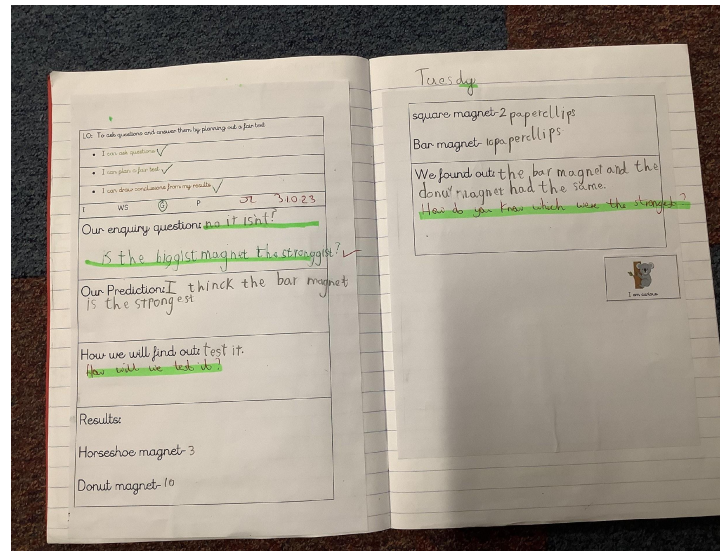 LO: To ask questions and answer them by planning out a fair test
I can ask questions
I can plan a fair test
I can draw conclusions from my results
I WS G P 31.0.23
Our enquiry question: no it isnt?
is the biggist magnet the stronggist?
Our Prediction: I thinck the bar magnet
is the strongest
How we will find out: test it.
How will we test it?
Results:
Horseshoe magnet- 3
Donut magnet- 10
Tuesday
square magnet-2 papercllips
Bar magnet- 10papercllips
We found out: the bar magnet and the
donut magnet had the same.
How do you know which were the strongest?
I am curious